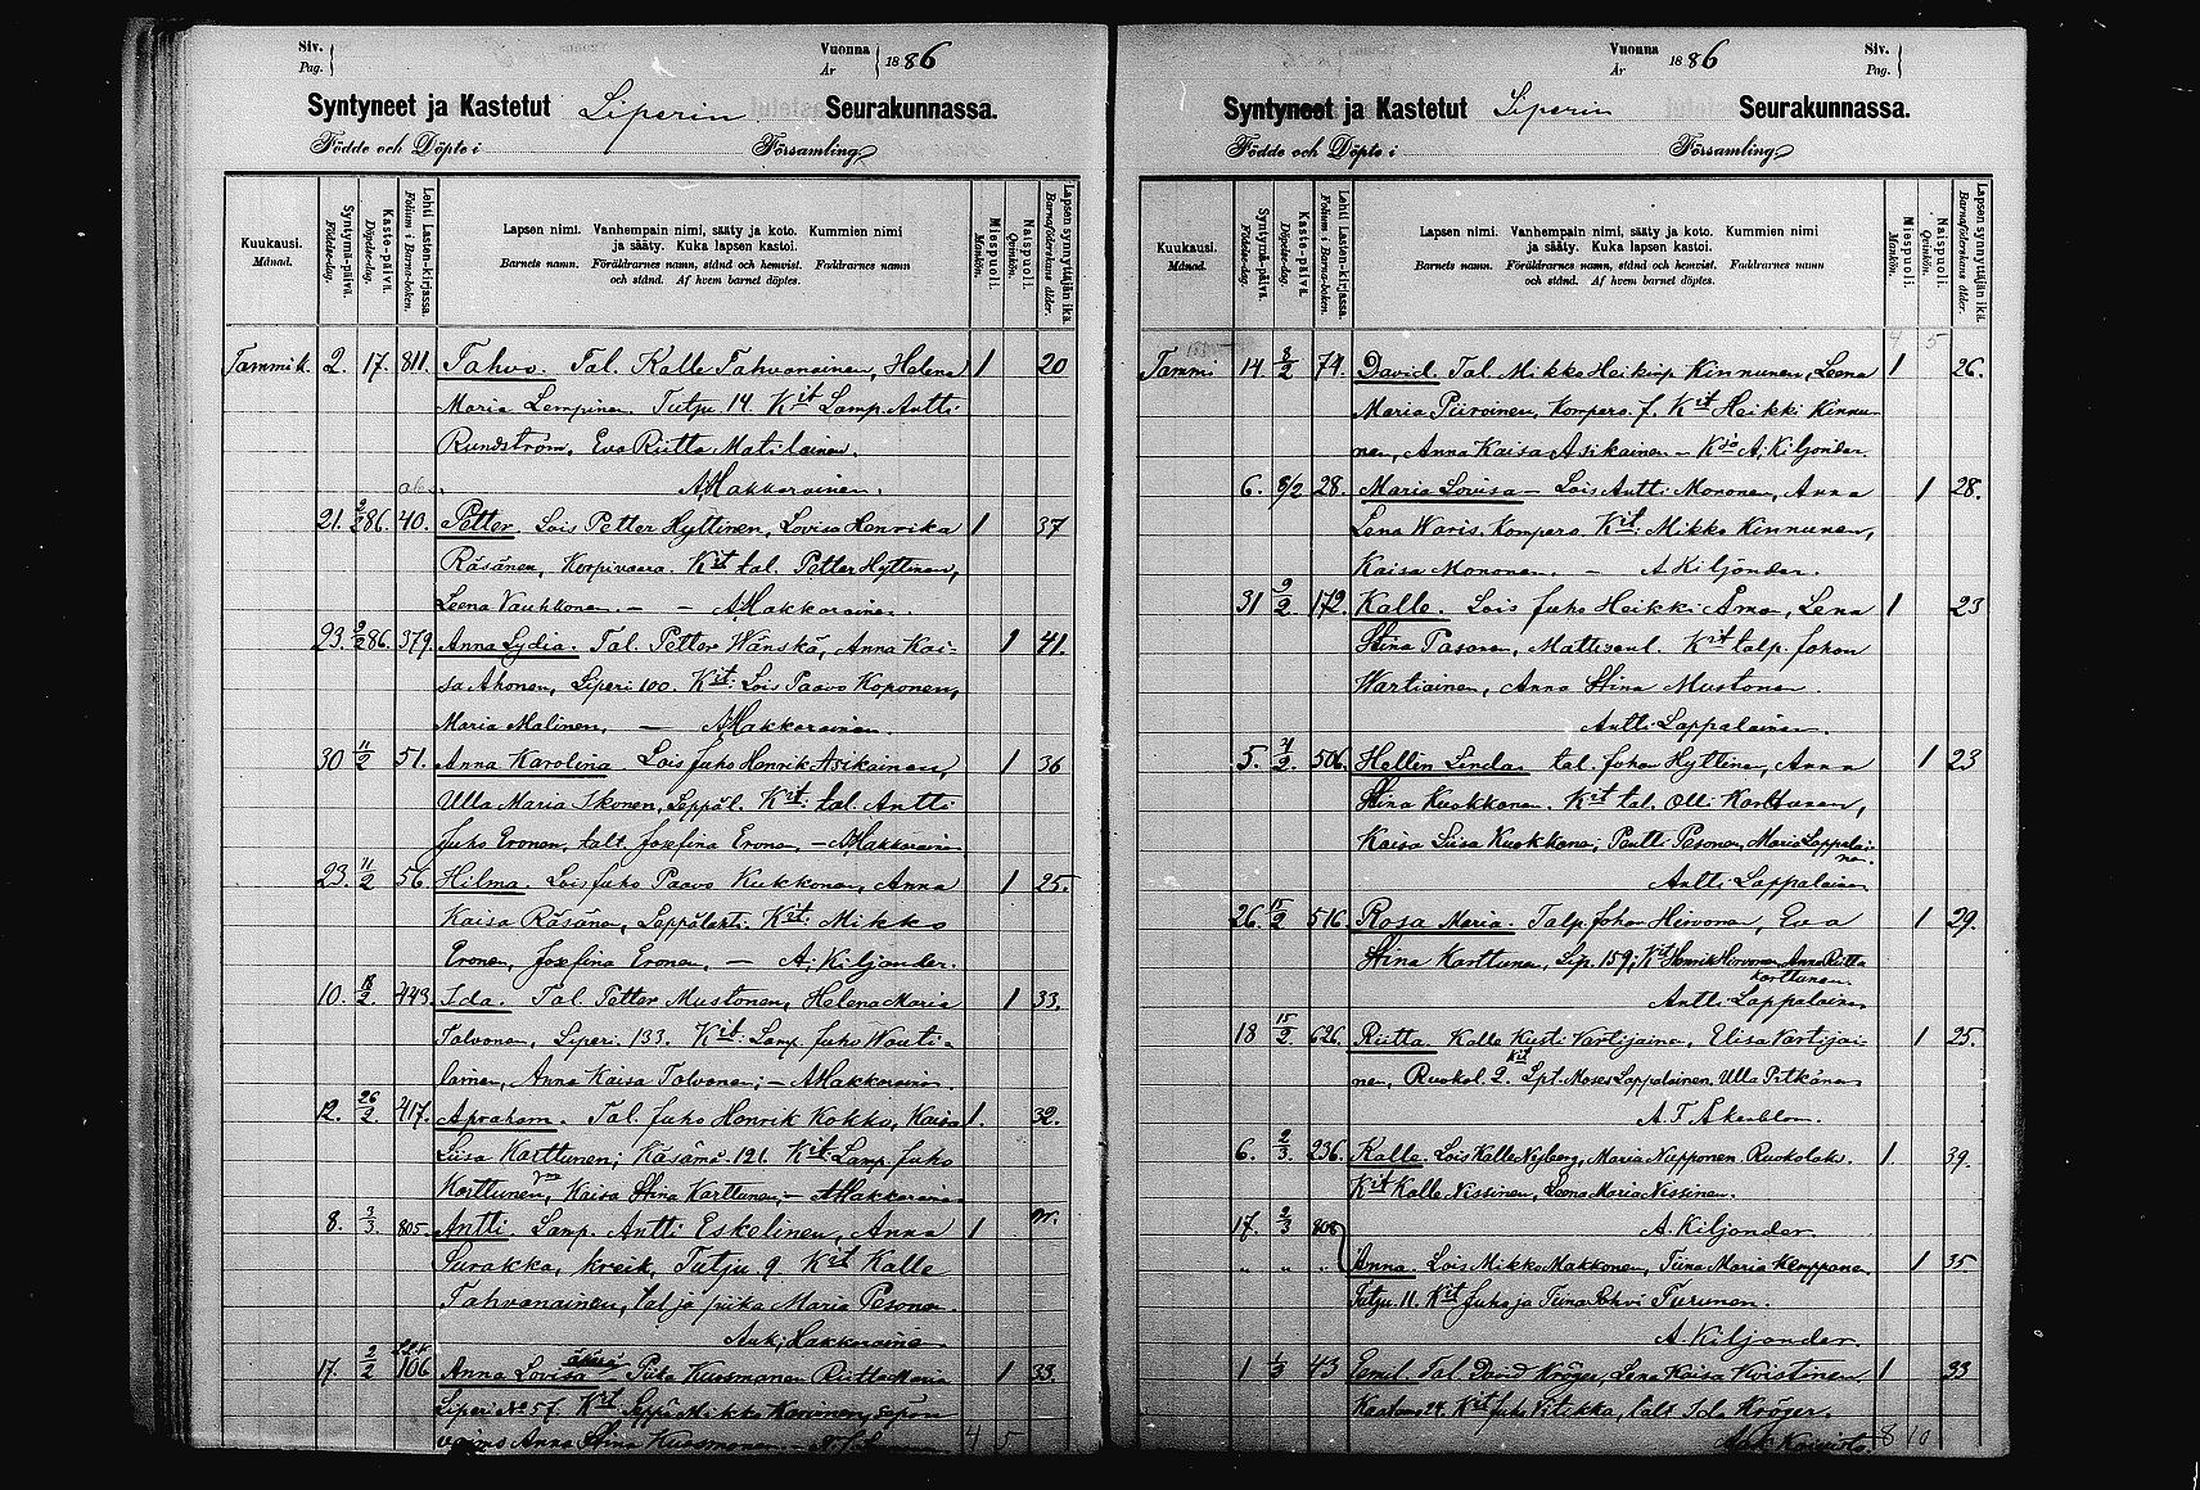 Siv.
Pag.
Vuonna
År
1886
Syntyneet ja Kastetut Liperin Seurakunnassa.
Födde och Döpte i Församling
Kuukausi.
Månad.
Syntymä-päivä.
Födelse-dag.
Kaste-päivä.
Döpelse-dag.
Lehti Lasten-kirjassa.
Folium i Barna-boken.
Lapsen nimi. Vanhempain nimi, sääty ja koto. Kummien nimi
ja sääty. Kuka lapsen kastoi.
Barnets namn. Föräldrarnes namn, stånd och hemvist. Faddrarnes namn
och stånd. Af hvem barnet döptes.
Miespuoli.
Mankön.
Naispuoli.
Qvinkön.
Lapsen synnyttäjän ikä.
Barnaföderskans ålder.
Tammik. 2. 17. 811. Tahvo. Tal. Kalle Tahvanainen, Helena 1 20
Maria Lempinen. Tutju. 14. Kit Lamp. Antti
Rundström, Eva Riitta Matilainen.
A. Makkarainen.
21. 2/2 86. 40. Petter. Lois Petter Hyttinen, Lovisa Henrika 1 37
Räsänen, Korpivaara. Kit tal. Petter Hyttinen,
Leena Vauhkonen. — — A. Makkarainen.
23. 2/2 86. 379. Anna Lydia. Tal. Petter Wänskä, Anna Kai- 1 41.
sa Ahonen, Liperi 100. Kit: Lois Paavo Koponen,
Maria Malinen, — A. Makkarainen.
30 11/2 51. Anna Karolina. Lois Juho Henrik Asikainen, 1 36
Ulla Maria Ikonen, Leppäl. Kit: tal. Antti
Juho Eronen, talt. Josefina Eronen, — A. Makkarainen
23. 11/2 56. Hilma. Lois Juho Paavo Kukkonen, Anna 1 25.
Kaisa Räsänen, Leppälahti. Kit: Mikko
Eronen, Josefina Eronen, — A. Kiljander.
10. 18/2. 443. Ida. Tal. Petter Mustonen, Helena Maria 1 33.
Tolvanen, Liperi. 133. Kit: Lamp. Juho Wauti-
lainen, Anna Kaisa Tolvanen; — A. Makkarainen.
12. 26/2. 417. Apraham. Tal. Juho Henrik Kokko, Kaisa 1. 32.
Liisa Karttunen; Käsämä. 121. Kit: Lamp. Juho
Karttunen, Kaisa Stina Karttunen; — A. Makkarainen
8. 3/3. 805. Antti. Lamp. Antti Eskelinen, Anna 1
Surakka, kreik, Tutju. 9. Kit Kalle
Tahvanainen, tal ja piika Maria Pesonen.
Ant. Makkarainen
17. 2/2 106 Anna Lovisa äpärä Piika Kuosmanen Riitta Maria 1 33.
Liperi No 57. Kit Seppä Mikko Karvinen, sepän
vaimo Anna Stina Kuosmanen — 4 5
Vuonna
År
1886
Siv.
Pag.
Syntyneet ja Kastetut Liperin Seurakunnassa.
Födde och Döpte i Församling
Kuukausi.
Månad.
Syntymä-päivä.
Födelse-dag.
Kaste-päivä.
Döpelse-dag.
Lehti Lasten-kirjassa.
Folium i Barna-boken.
Lapsen nimi. Vanhempain nimi, sääty ja koto. Kummien nimi
ja sääty. Kuka lapsen kastoi.
Barnets namn. Föräldrarnes namn, stånd och hemvist. Faddrarnes namn
och stånd. Af hvem barnet döptes.
Miespuoli.
Mankön.
Naispuoli.
Qvinkön.
Lapsen synnyttäjän ikä.
Barnaföderskans ålder.
4 5
Tammi 14. 8/2 74. David. Tal. Mikko Heikinp. Kinnunen, Leena 1 26.
Maria Piiroinen, Kompero. 7. Kit Heikki Kinnu-
nen, Anna Kaisa Asikainen — A. Kiljander.
6. 8/2 28. Maria Lovisa — Lois Antti Mononen, Anna 1 28.
Lena Waris. Kompero. Kit: Mikko Kinnunen,
Kaisa Mononen. — A. Kiljander.
31 9/2. 172. Kalle. Lois Juho Heikki Åman, Lena 1 23
Stina Pasanen, Mattisenl. Kit talp. Johan
Wartiainen, Anna Stina Mustonen.
Antti Lappalainen.
5. 7/2. 506. Hellin Linda. tal. Johan Hyttinen, Anna 1 23
Stina Kuokkanen. Kit tal. Olli Karttunen,
Kaisa Liisa Kuokkanen; Pentti Pesonen, Maria Lappalai-
nen.
Antti Lappalainen
26. 15/2 516. Rosa Maria. Talp. Johan Hirvonen, Eva 1 29.
Stina Karttunen, Lip. 159; Kit Henrik Hirvonen, Anna Riitta
Karttunen.
Antti Lappalainen
18 15/2. 626. Riitta. Kalle Kusti Vartijainen, Elisa Vartijai- 1 25.
nen, Ruokol. 2. Kit Lpt. Moses Lappalainen, Ulla Pitkänen
A. F. Åkerblom.
6. 2/3. 236. Kalle. Lois Kalle Nyberg, Maria Nupponen. Ruokolak. 1. 39.
Kit Kalle Nissinen, Leena Maria Nissinen.
17. 2/3 808 A. Kiljander.
" " " Anna. Lois Mikko Makkonen, Tiina Maria Kemppanen 1 35.
Tutju. 11. Kit Juho ja Tiina Sohvi Turunen.
A. Kiljander.
1 1/3 43 Eemil. Tal. David Kröger, Lena Kaisa Koistinen. 1 33
Kaatamo 24. Kit Juho Vitikka, talt Ida Kröger.
8 10